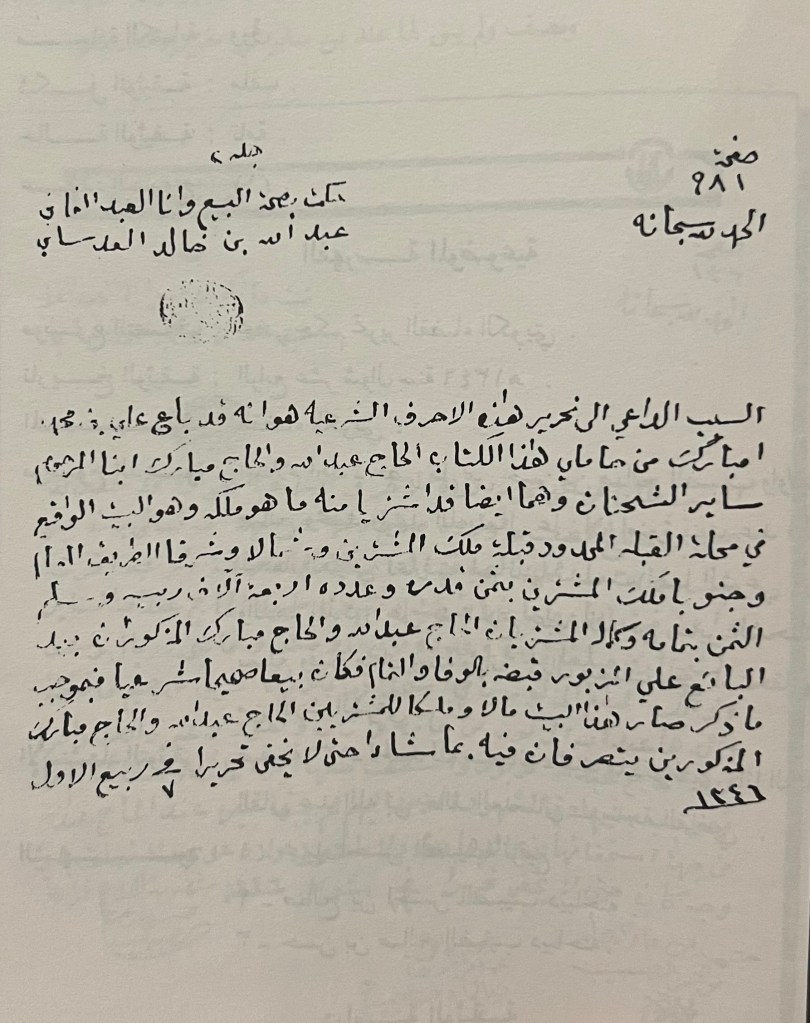 صفحة
٩٨١
الحمد لله سبحانه
جلد ٢
حكمت بصحة البيع وانا العبد الفاني
عبد الله بن خالد العدساني
السبب الداعي الى تحرير هذه الاحرف الشرعيه هو انه قد باع علي بن محمد
امبارك من حاملي هذا الكتاب الحاج عبدالله والحاج مبارك ابنا المرحوم
ساير الشحنان وهما ايضا قد اشتريا منه ما هو ملكه وهو البيت الواقع
في محلة القبله المحدود قبلة ملك المشترين وشمالا وشرقا الطريق العام
وجنوبا ملك المشترين بثمن قدره وعدده اربعة آلاف ريب وسلم
الثمن بتمامه وكماله المشتريان الحاج عبدالله والحاج مبارك المذكوران بيد
البائع علي المزبور قبضه بالوفا والتمام فكان بيعا صحيحا شرعيا فبموجب
ما ذكر صار هذا البيت مالا وملكا للمشتريين الحاج عبدالله والحاج مبارك
المذكورين يتصرفان فيه بما شاءا حتى لا يخفى تحريرا في ٧ ربيع الاول
١٣٤٦